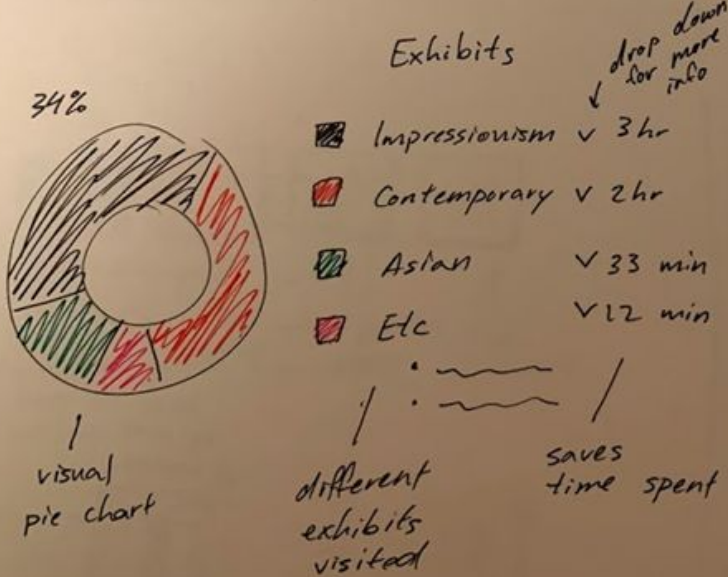 Exhibits
drop down
for more
info
34%
Impressionism v 3 hr
Contemporary v 2hr
Asian v 33 min
Etc v 12 min
visual
pie chart
different
exhibits
visited
saves
time spent